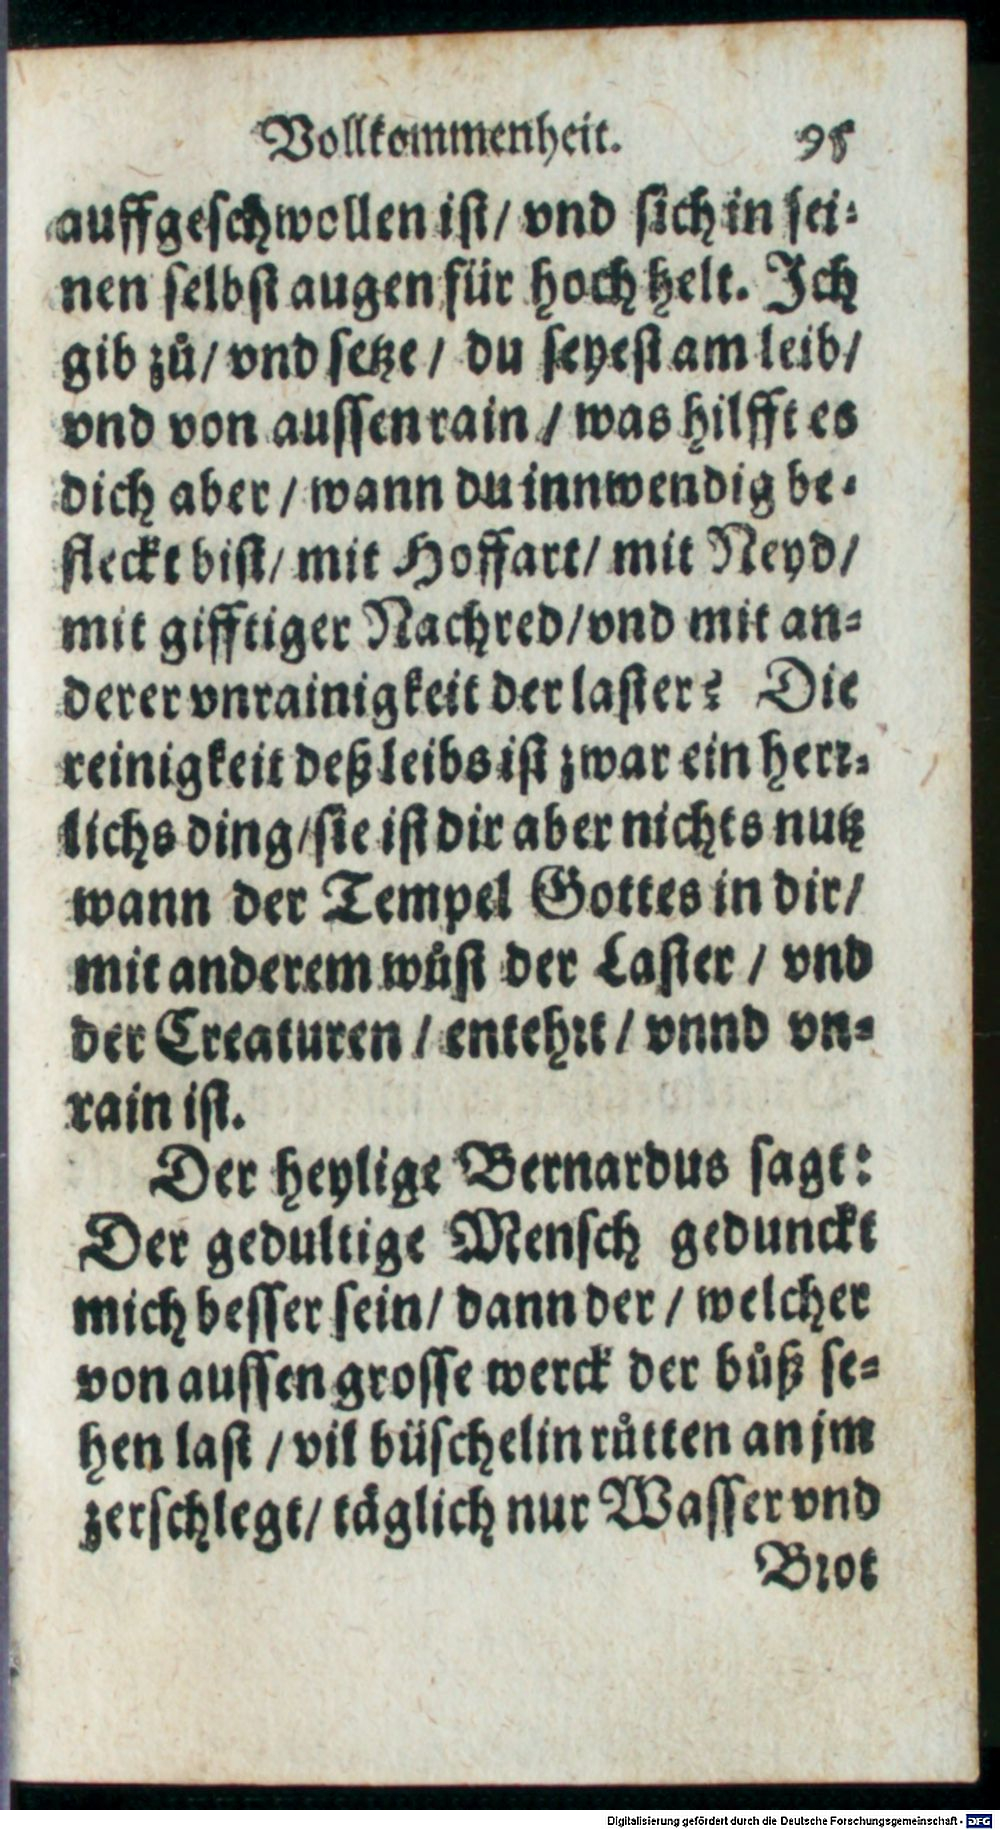 Vollkommenheit. 95
auffgeschwollen ist/ vnd sich in sei-
nen selbst augen für hoch helt. Ich
gib zů/ vnd setze/ du seyest am leib/
vnd von aussen rain/ was hilfft es
dich aber/ wann du innwendig be-
fleckt bist/ mit Hoffart/ mit Neyd/
mit gifftiger Nachred/ vnd mit an-
derer vnrainigkeit der laster? Die
reinigkeit deß leibs ist zwar ein herr-
lichs ding/ sie ist dir aber nichts nutz
wann der Tempel Gottes in dir/
mit anderem wůst der Laster/ vnd
der Creaturen/ entehrt/ vnnd vn-
rain ist.
Der heylige Bernardus sagt:
Der gedultige Mensch gedunckt
mich besser sein/ dann der/ welcher
von aussen grosse werck der bůß se-
hen last/ vil büschelin růtten an jm
zerschlegt/ täglich nur Wasser vnd
Brot
Digitalisierung gefördert durch die Deutsche Forschungsgemeinschaft - DFG